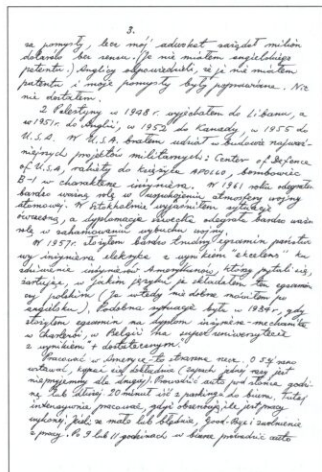 3.
za pomysły, lecz mój adwokat zażądał milion
dolarów bez sensu. (Ja nie miałem angielskiego
patentu.) Anglicy odpowiedzieli, że ja nie miałem
patentu i moje pomysły były poprawiane. Nic
nie dostałem.
Z Palestyny w 1948 r. wyjechałem do Libanu, a
w 1951 r. do Anglii, w 1952 do Kanady, w 1955 do
U.S.A. W U.S.A. brałem udział w budowie najważ-
niejszych projektów militarnych: Center of Defence
of U.S.A, rakiety do księżyca APOLLO, bombowiec
B-1 w charakterze inżyniera. W 1961 roku odegrałem
bardzo ważną rolę w uspokojeniu atmosfery wojny
atomowej. W Sztokholmie wyjaśniłem sytuację
ówczesną, a dyplomacja szwecka odegrała bardzo ważną
rolę w zahamowaniu wybuchu wojny.
W 1957 r. złożyłem bardzo trudny egzamin państwo-
wy inżyniera elektryka z wynikiem "excelens" ku
zdziwieniu inżynierów Amerykanów, którzy pytali się,
żartując, w jakim języku ja składałem ten egzamin
czy polskim (Ja wtedy nie dobrze mówiłem po
angielsku). Podobna sytuacja była w 1934 r, gdy
złożyłem egzamin na dyplom inżyniera-mechanika
w Charleroi, w Belgii na uniwersytecie
z wynikiem + dostatecznym.
Pracować w Ameryce - to straszna rzecz. O 5 ej rano
wstawać, kąpać się dokładnie (zapach jednej rasy jest
nieprzyjemny dla drugiej). Prowadzić auto pod słońce godzi-
nę lub dłużej 20 minut iść z parkingu do biura. Tutaj
intensywnie pracować, gdyż obserwują ile jest pracy
wykonaj. Jeżeli za mało lub błędnie, Good-Bye i zwolnienie
z pracy. Po 9 lub 11 godzinach w biurze prowadzić auto